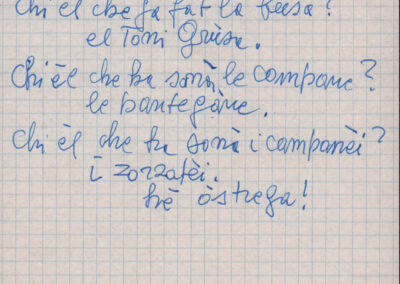 Chi el che ga fat la fuesa?
el Toni Grüsa.
Chi èl che ha sonà le campane?
le pantegàne.
Chi èl che ha sonà i campanèi?
i zorzatèi.
trè òstrega!